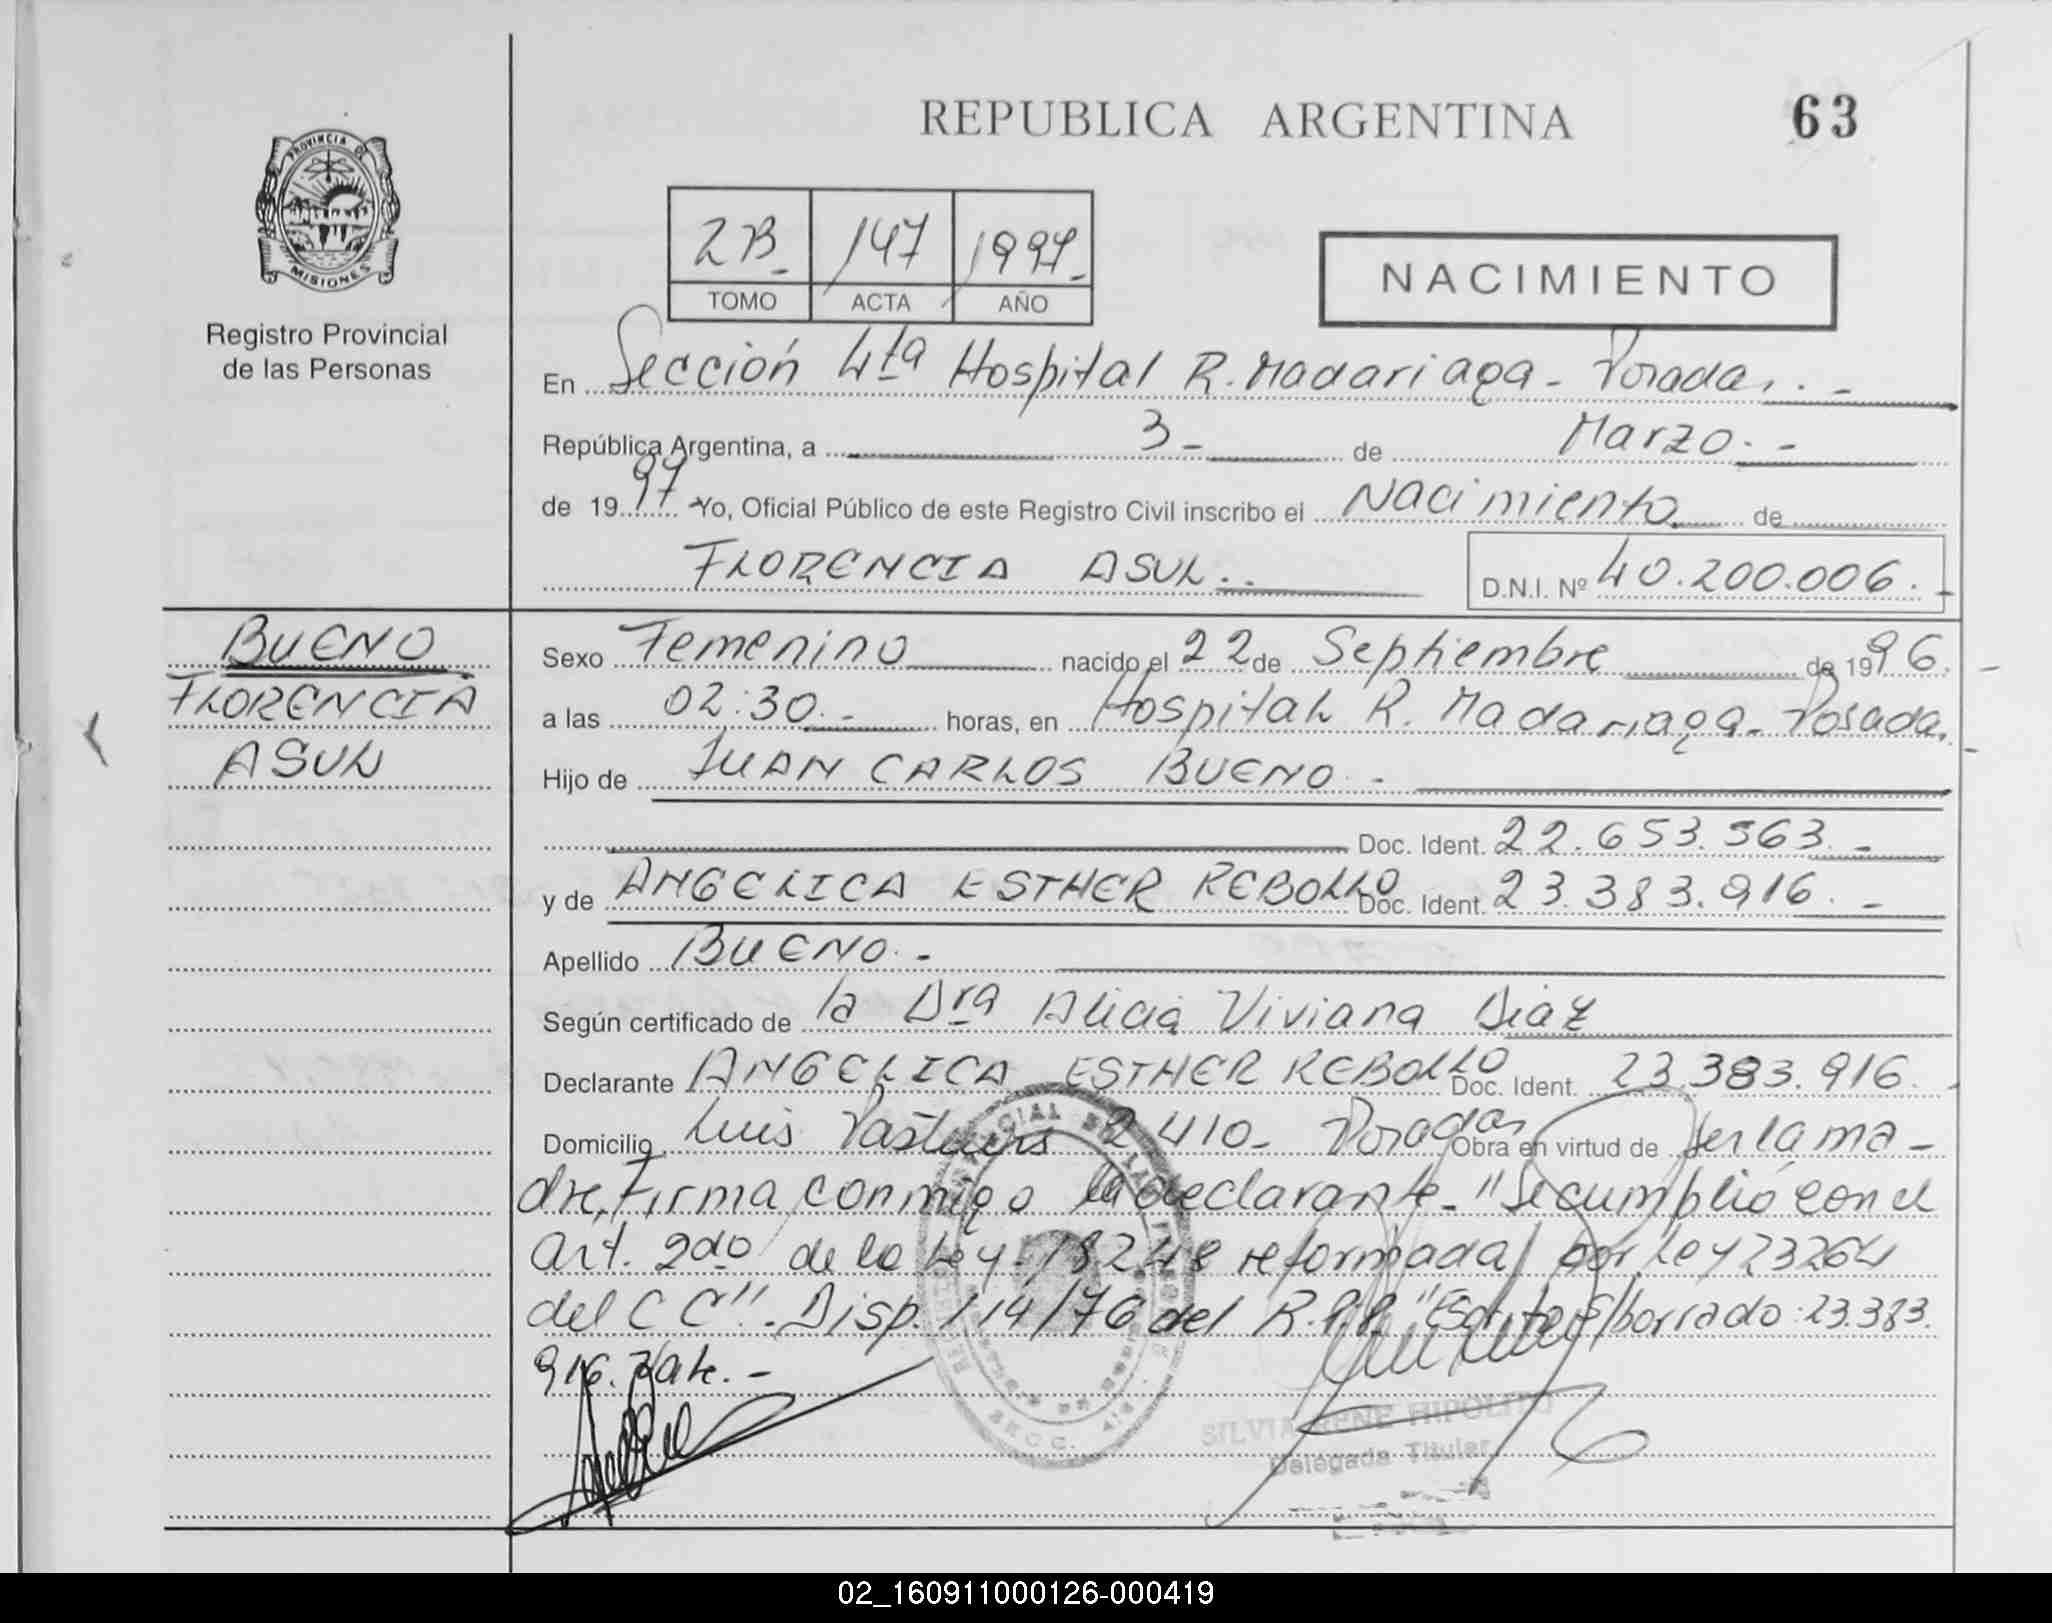 REPUBLICA ARGENTINA
63
PROVINCIA DE
MISIONES
Registro Provincial
de las Personas
2B- 147 1997-
TOMO ACTA AÑO
NACIMIENTO
En Sección 4ta Hospital R. Madariaga - Posadas. -
República Argentina, a 3- de Marzo. -
de 1997 Yo, Oficial Público de este Registro Civil inscribo el Nacimiento de
FLORENCIA ASUL.- D.N.I. Nº 40.200.006.-
BUENO
FLORENCIA
ASUL
Sexo Femenino nacido el 22 de Septiembre de 1996. -
a las 02:30.- horas, en Hospital R. Madariaga - Posadas. -
Hijo de JUAN CARLOS BUENO. -
Doc. Ident. 22.653.563. -
y de ANGELICA ESTHER REBOLLO Doc. Ident. 23.383.916. -
Apellido BUENO. -
Según certificado de la Dra Alicia Viviana Diaz
Declarante ANGELICA ESTHER REBOLLO Doc. Ident. 23.383.916.
Domicilio Luis 2410- Posadas Obra en virtud de ser la ma-
dre, Firma conmigo la declarante- "Se cumplió con el
art. 2do de la Ley 18248 reformada por Ley 23264
del C C". Disp. 114/76 del R.P.P. "Escrito s/borrado: 23.383.
916. Vale. -
SILVIA RENE HIPOLITO
Delegada Titular
02_160911000126-000419